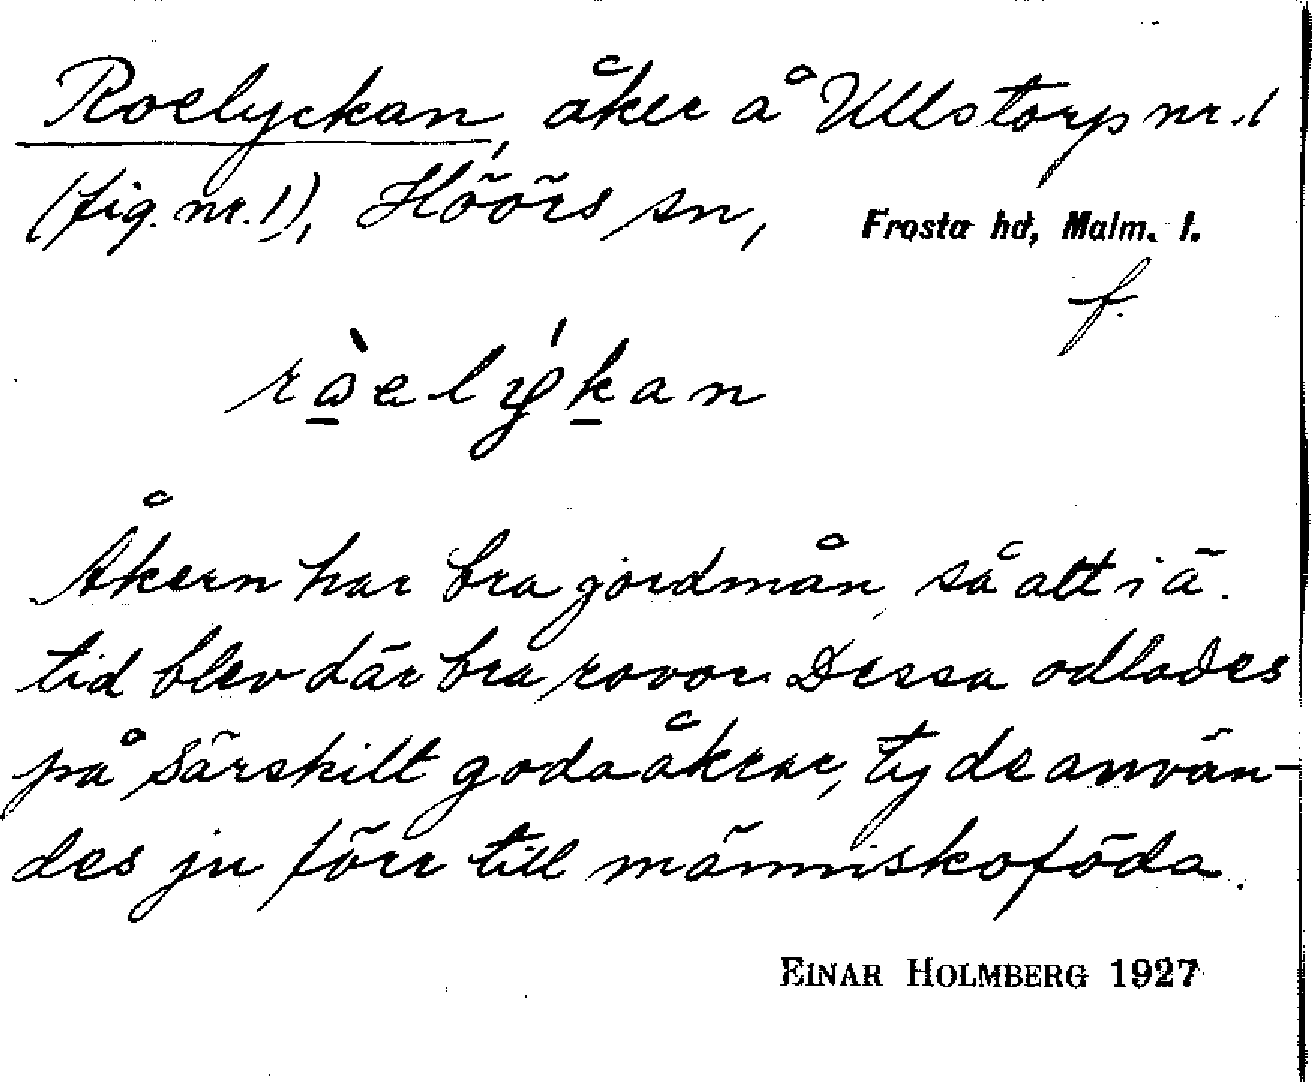 Roelyckan, åker å Ullstorp nr. 1
(fig. nr. 1), Höörs sn, Frosta hd, Malm. l.
f.
Åkern har bra jordmån, så att i ä.
tid blev där bra rovor. Dessa odlades
på särskilt goda åkrar, ty de använ-
des ju förr till människoföda.
EINAR HOLMBERG 1927